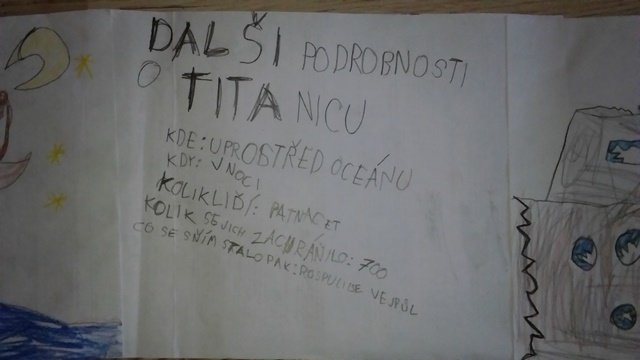 DALŠI PODROBNOSTI
O TITANICU
KDE: UPROSTŘED OCEÁNU
KDY: V NOCI
KOLIK LIDÍ: PATNACET
KOLIK SE JICH ZACHRÁNILO: 700
CO SE SNÍM STALO PAK: ROSPULIL SE VEJPŮL